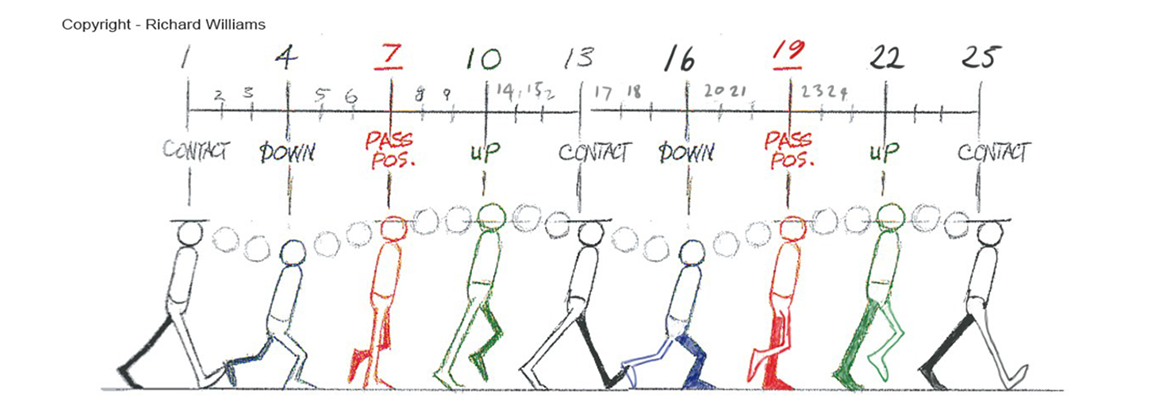 Copyright - Richard Williams
1 4 7 10 13 16 19 22 25
2 3 5 6 8 9 14, 15 2 17 18 20 21 23 24
CONTACT DOWN PASS POS. UP CONTACT DOWN PASS POS. UP CONTACT